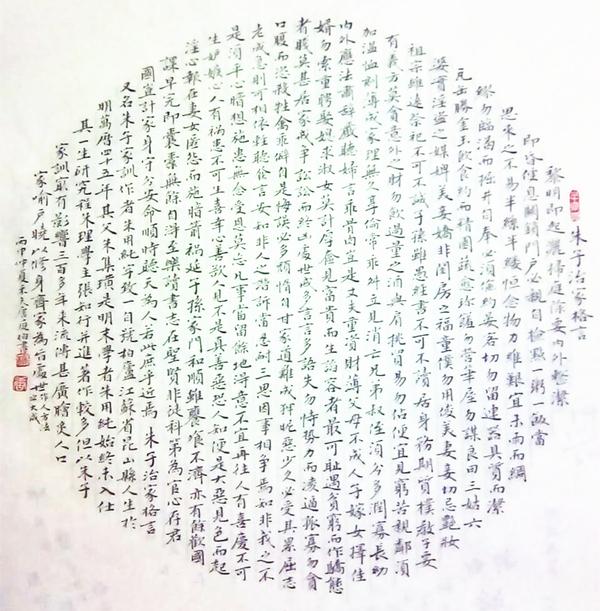 朱子治家格言
黎明即起灑掃庭除要内外整潔
即昏便息關鎖門户必親自檢點一粥一飯當
思來之不易半絲半縷恒念物力維艱宜未雨而綢
繆勿臨渴而掘井自奉必須儉約宴客切勿留連器具質而潔
瓦缶勝金玉飲食約而精園蔬愈珍饈勿營華屋勿謀良田三姑六
婆實淫盜之媒婢美妾嬌非閨房之福童僕勿用俊美妻妾切忌艷妝
祖宗雖遠祭祀不可不誠子孫雖愚經書不可不讀居身務期質樸教子要
有義方莫貪意外之財勿飲過量之酒與肩挑貿易勿佔便宜見窮苦親鄰須
加溫恤刻薄成家理無久享倫常乖舛立見消亡兄弟叔侄須分多潤寡長幼
内外應法肅辭嚴聽婦言乖骨肉豈是丈夫重資財薄父母不成人子嫁女擇佳
婿勿索重聘娶媳求淑女莫計厚奩見富貴而生諂容者最可恥遇貧窮而作驕態
者賤莫甚居家戒爭訟訟而終凶處世戒多言言多語失勿恃勢力而凌逼孤寡勿貪
口腹而恣殺牲禽乖僻自是悔誤必多頹惰自甘家道難成狎昵惡少久必受其累屈志
老成急則可相依輕聽發言安知非人之譖訴當忍耐三思因事相爭焉知非我之不
是須平心暗想施惠無念受恩莫忘凡事當留餘地得意不宜再往人有喜慶不可
生妒嫉心人有禍患不可生喜幸心善欲人見不是真善惡恐人知便是大惡見色而起
淫心報在妻女匿怨而施暗箭禍延子孫家門和順雖饔飧不濟亦有餘歡國
課早完即囊橐無餘自得至樂讀書志在聖賢非徒科第為官心存君
國豈計家身守分安命順時聽天為人若此庶乎近焉 朱子治家格言
又名朱子家訓作者朱用純字致一自號柏廬江蘇省昆山縣人生於
明萬曆四十五年其父朱集璜是明末學者朱用純始終未入仕
其一生研究程朱理學主張知行并進著作較多但以朱子
家訓最有影響三百多年來流傳甚廣膾炙人口
家喻户曉以修身齊家為旨處世作人方法之大成
丙申仲夏